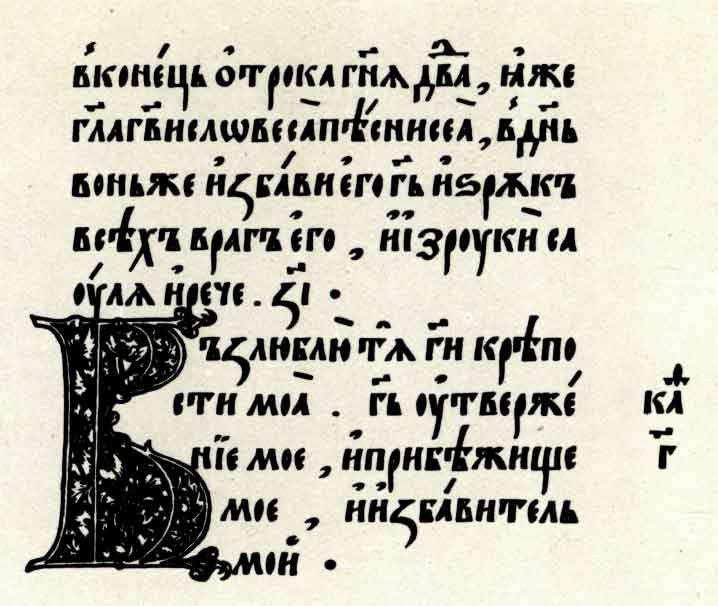 в҆конє́цъ ѻ҆трока гн҃ѧ дв҃да, ꙗ҆же
гл҃а гв҃и словеса̀ пѣ́сни сеа̀, в҆ дн҃ь
воньже и҆ꙁба́ви е҆го гь҃ и҆ѕ рѫкъ
всѣ́хъ врагъ е҆го, и҆ и҆з роуки̑ са
оу́лѧ и҆ рече. ꙁ҃і ·
Въꙁлюблю̀ тѧ̑ гн҃и крѣ́по
сти моа̀. гь҃ оу҆твержє́
нїе мое, и҆ прибѣ́жище
мое, и҆ и҆ꙁба́витель
мой ·
ка҃
г҃